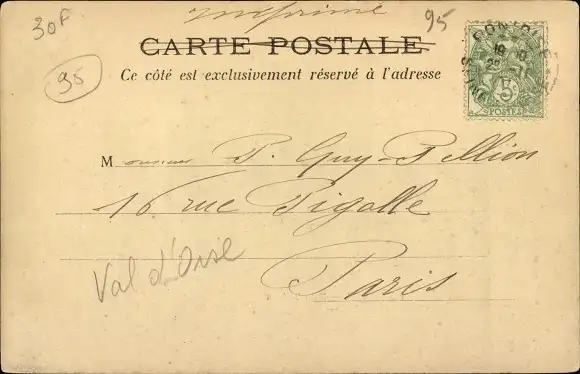 30F
imprimé
95
CARTE POSTALE
Ce côté est exclusivement réservé à l'adresse
95
5c
POSTES
Monsieur P. Guy-Pellion
16 rue Pigalle
Paris
Val d'Oise